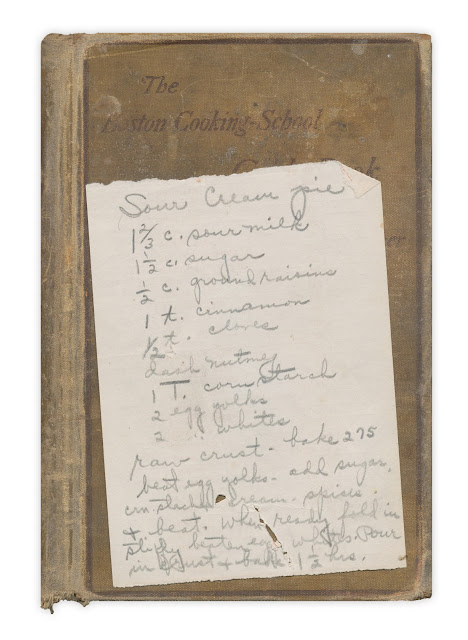 The
Boston Cooking-School
Sour Cream pie
1 2/3 c. sour milk
1 1/2 c. sugar
1/2 c. ground raisins
1 t. cinnamon
1/2 t. cloves
dash nutmeg
1 T. corn starch
2 egg yolks
2 " whites
raw crust - bake 275
beat egg yolks - add sugar,
corn starch cream - spices
+ beat. When ready fold in
stiffly beaten egg whites. Pour
in crust + bake 1 1/2 hrs.